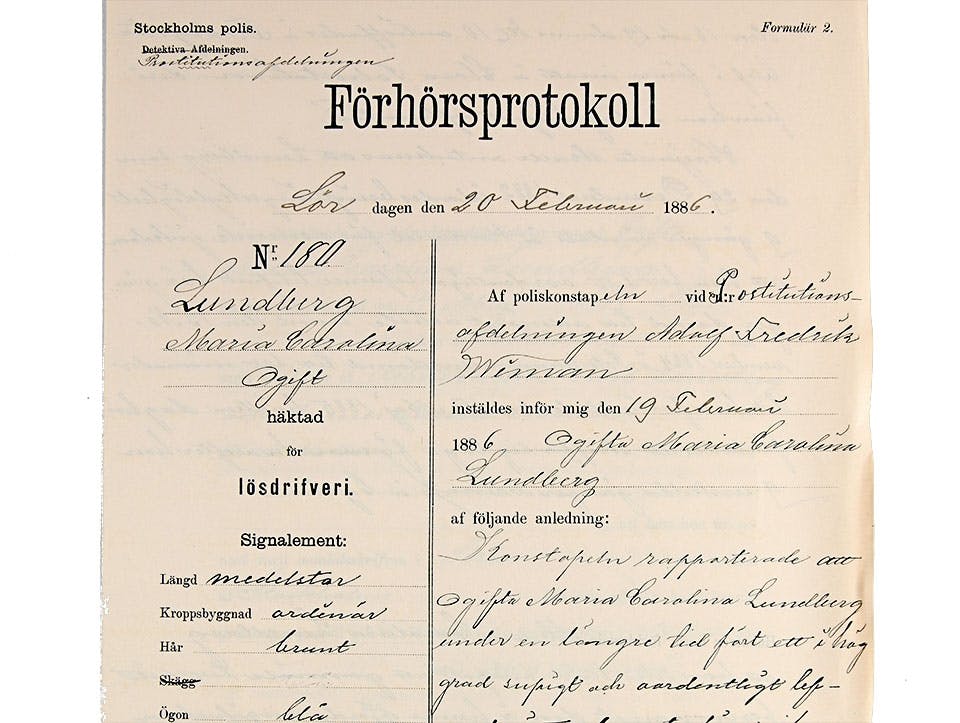 Stockholms polis.
Formulär 2.
Detektiva Afdelningen.
Prostitutionsafdelningen
Förhörsprotokoll
Lör dagen den 20 Februari 1886.
Nr 180
Lundberg
Maria Carolina
Ogift
häktad
för
lösdrifveri.
Signalement:
Längd medelstor
Kroppsbyggnad ordinär
Hår brunt
Skägg
Ögon blå
Af poliskonstapeln vid Prostitutions-
afdelningen Adolf Fredrik
Wiman
instäldes inför mig den 19 Februari
1886 Ogifta Maria Carolina
Lundberg
af följande anledning:
Konstapeln rapporterade att
Ogifta Maria Carolina Lundberg
under en längre tid fört ett i hög
grad supigt och oordentligt lef-